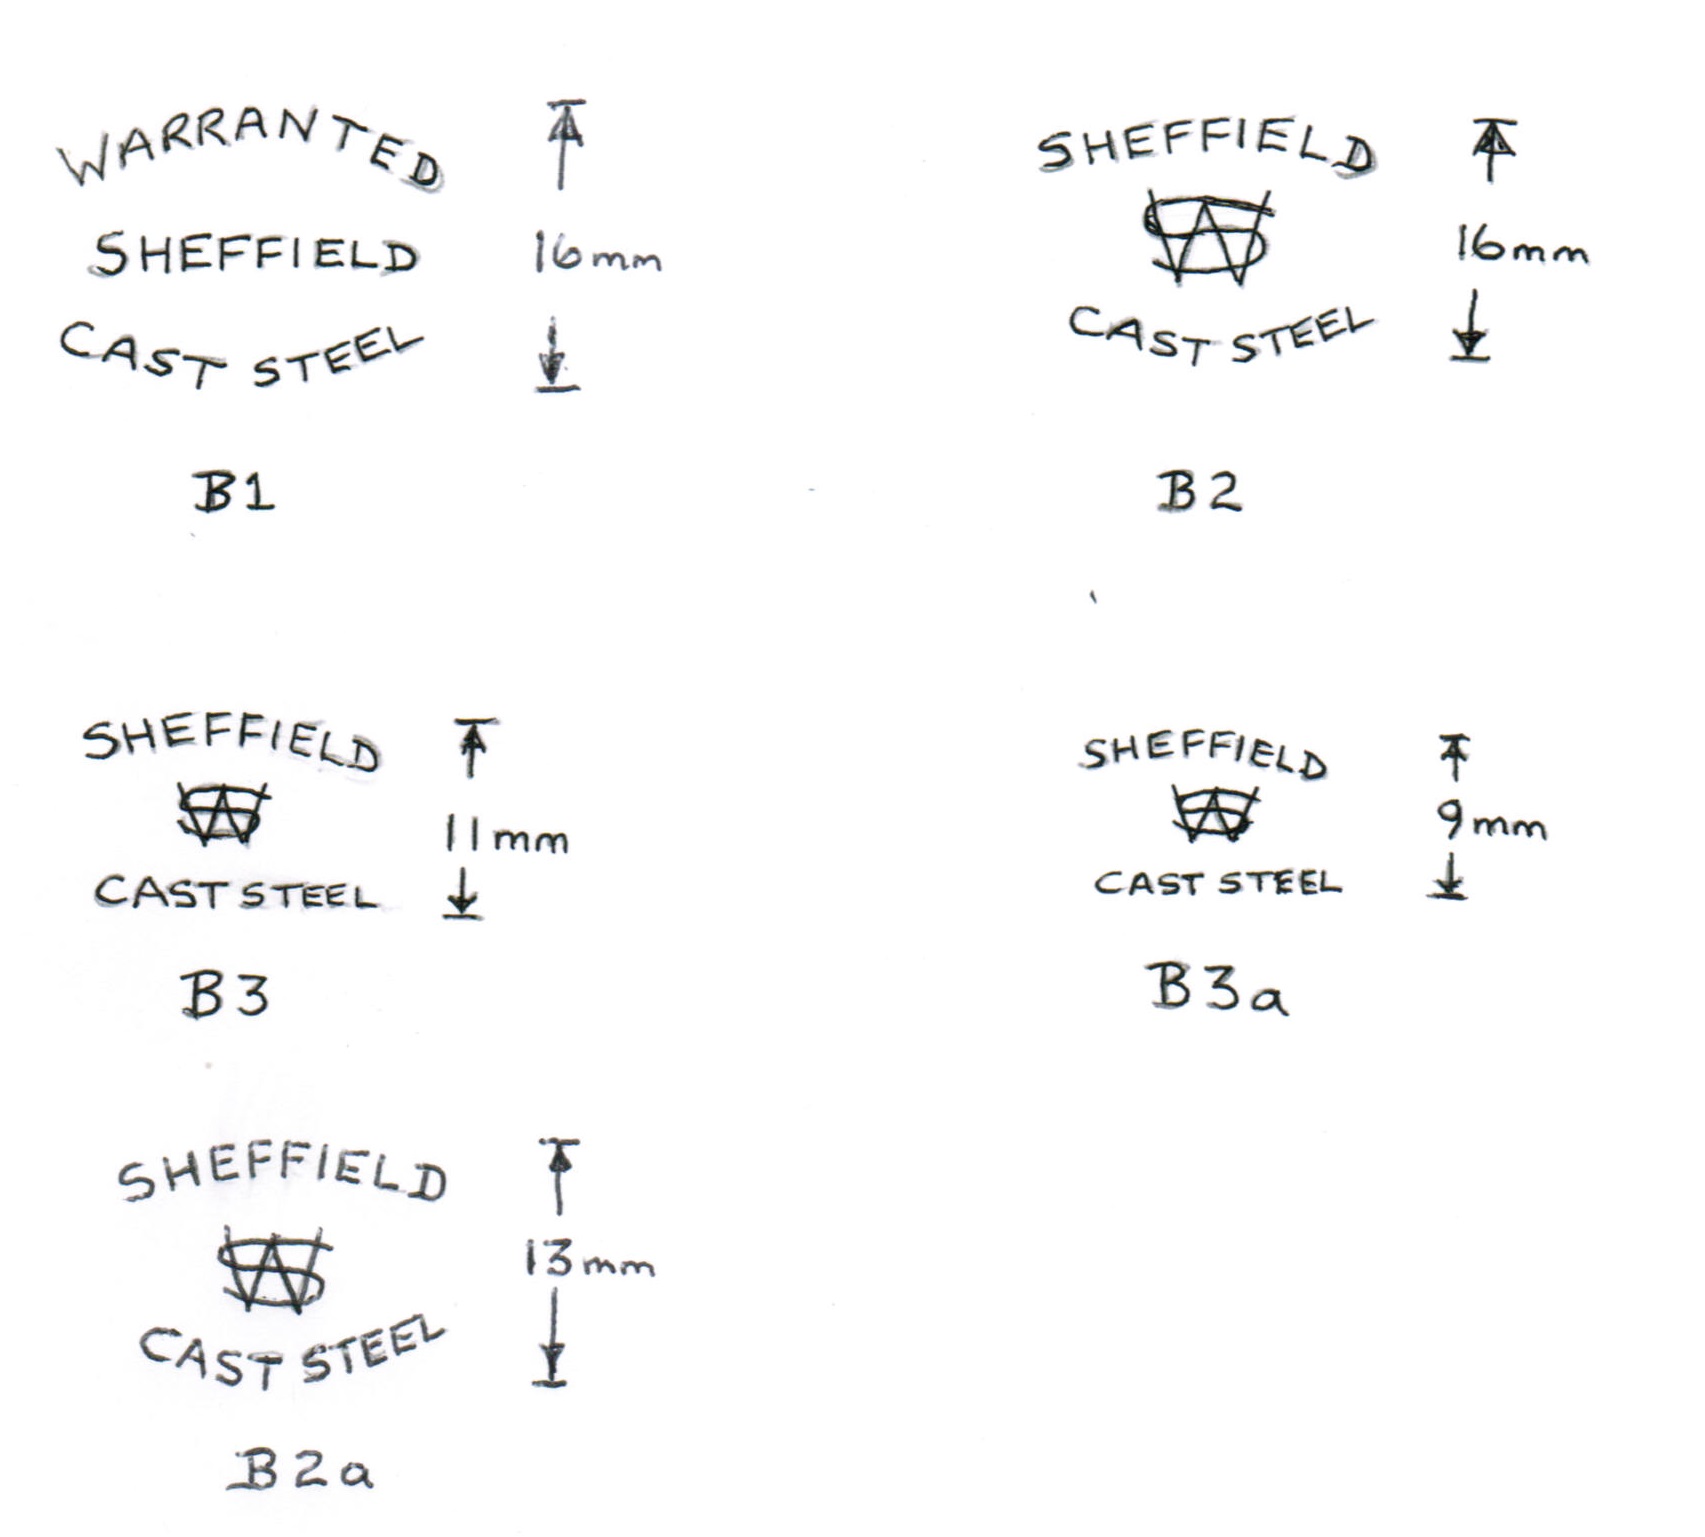 WARRANTED
SHEFFIELD
CAST STEEL
16mm
B1
SHEFFIELD
SW
CAST STEEL
16mm
B2
SHEFFIELD
SW
CAST STEEL
11mm
B3
SHEFFIELD
SW
CAST STEEL
9mm
B3a
SHEFFIELD
SW
CAST STEEL
13mm
B2a